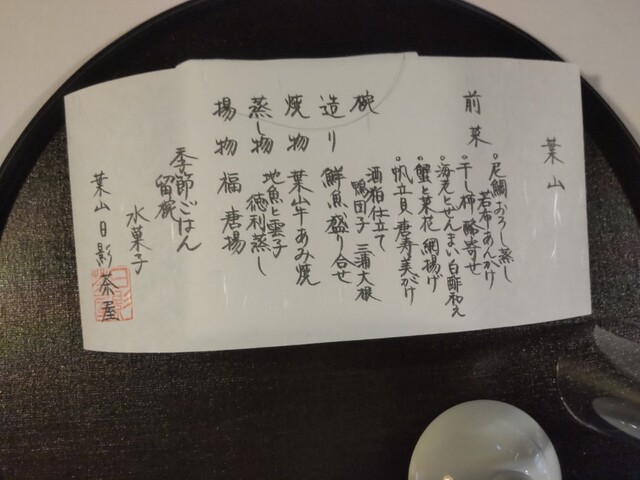 葉山
前菜
・尼鯛おろし蒸し
若布あんかけ
・干し柿酪寄せ
・海老とぜんまい白酢和え
・蟹と菜花 網揚げ
・帆立貝 唐寿美がけ
椀
酒粕仕立て
鴨団子 三浦大根
造り 鮮魚盛り合せ
焼物 葉山牛あみ焼
蒸し物 地魚と雲子
徳利蒸し
揚物 福 唐揚
季節ごはん
留椀
水菓子
葉山 日影茶屋